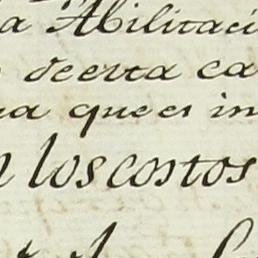 a Abilitaci
decerta ca
a que es in
n los costos